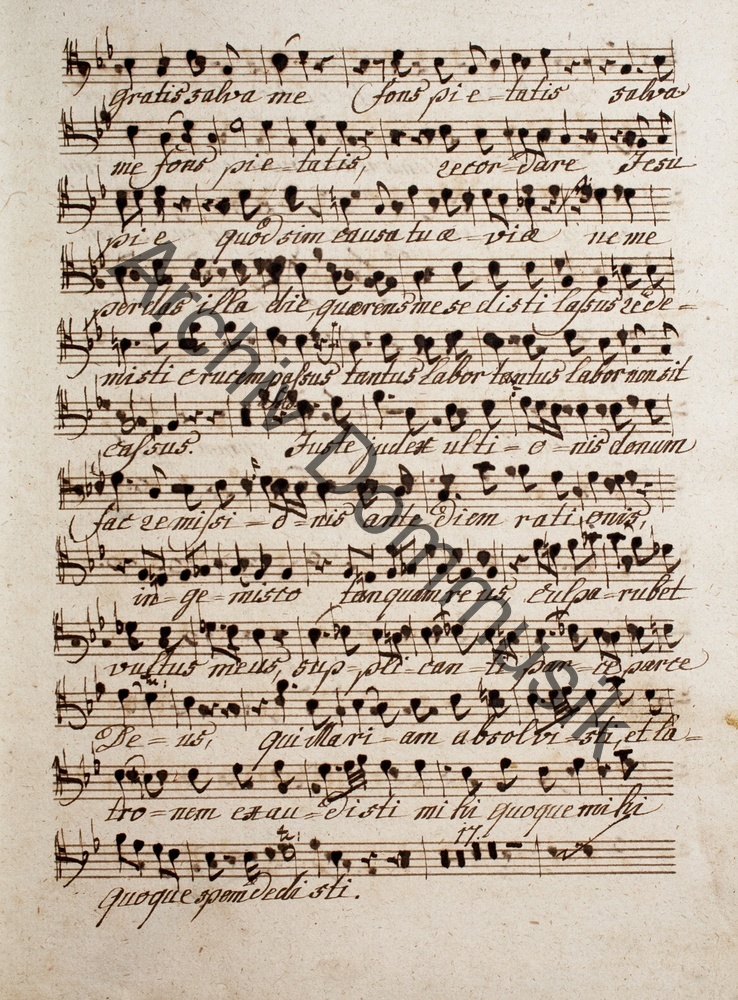 gratis salva me fons pi e = tatis salva
me fons pie = tatis, recor = dare Jesu
pi e quod sim causa tuæ = viæ ne me
perdas illa die, quærens me se disti lassus rede =
misti crucem passus tantus labor tantus labor non sit
cassus. Juste judex ulti = o = nis donum
fac remissi = o = nis ante diem rati onis,
in = ge = misco tanquam reus, culpa = rubet
vultus meus, sup = pli = can = ti par = ce parce
De = us, qui Mari = am absolvi = sti, et la =
tro = nem exau = disti mihi quoque mihi
17.
quoque spem dedi sti.
Archiv Dommusik